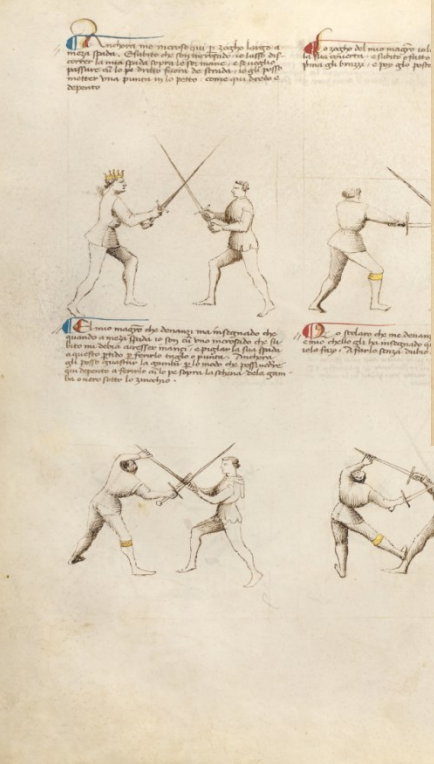 Anchora me incroso qui per zogho largo a
meza spada. E subito che son incrosado io lasso dis-
correr la mia spada sopra le soe mane, e se voglio
passare cum lo pe dritto fuora de strada, io gli posso
metter una punta in lo petto, come qui dredo e
depento
Lo zogho del mio magistro
la sua coverta, e subito
gli brazzi, e poy glo posta
El mio magistro che denanzi ma insegnado che
quando a meza spada io son cum uno incrosado che su-
bito mi debia acresser inanzi, e pigliar la sua spada
a questo partido per ferirlo taglio o punta. Anchora
gli posso guastar la gamba per lo modo che possi vedere
qui depento a ferirlo cum lo pe sopra la schena dela gam-
ba overo sotto lo zinochio.
Lo scolaro che me denanzi
e mio che lo gli ha insegnado
A farlo senza dubio